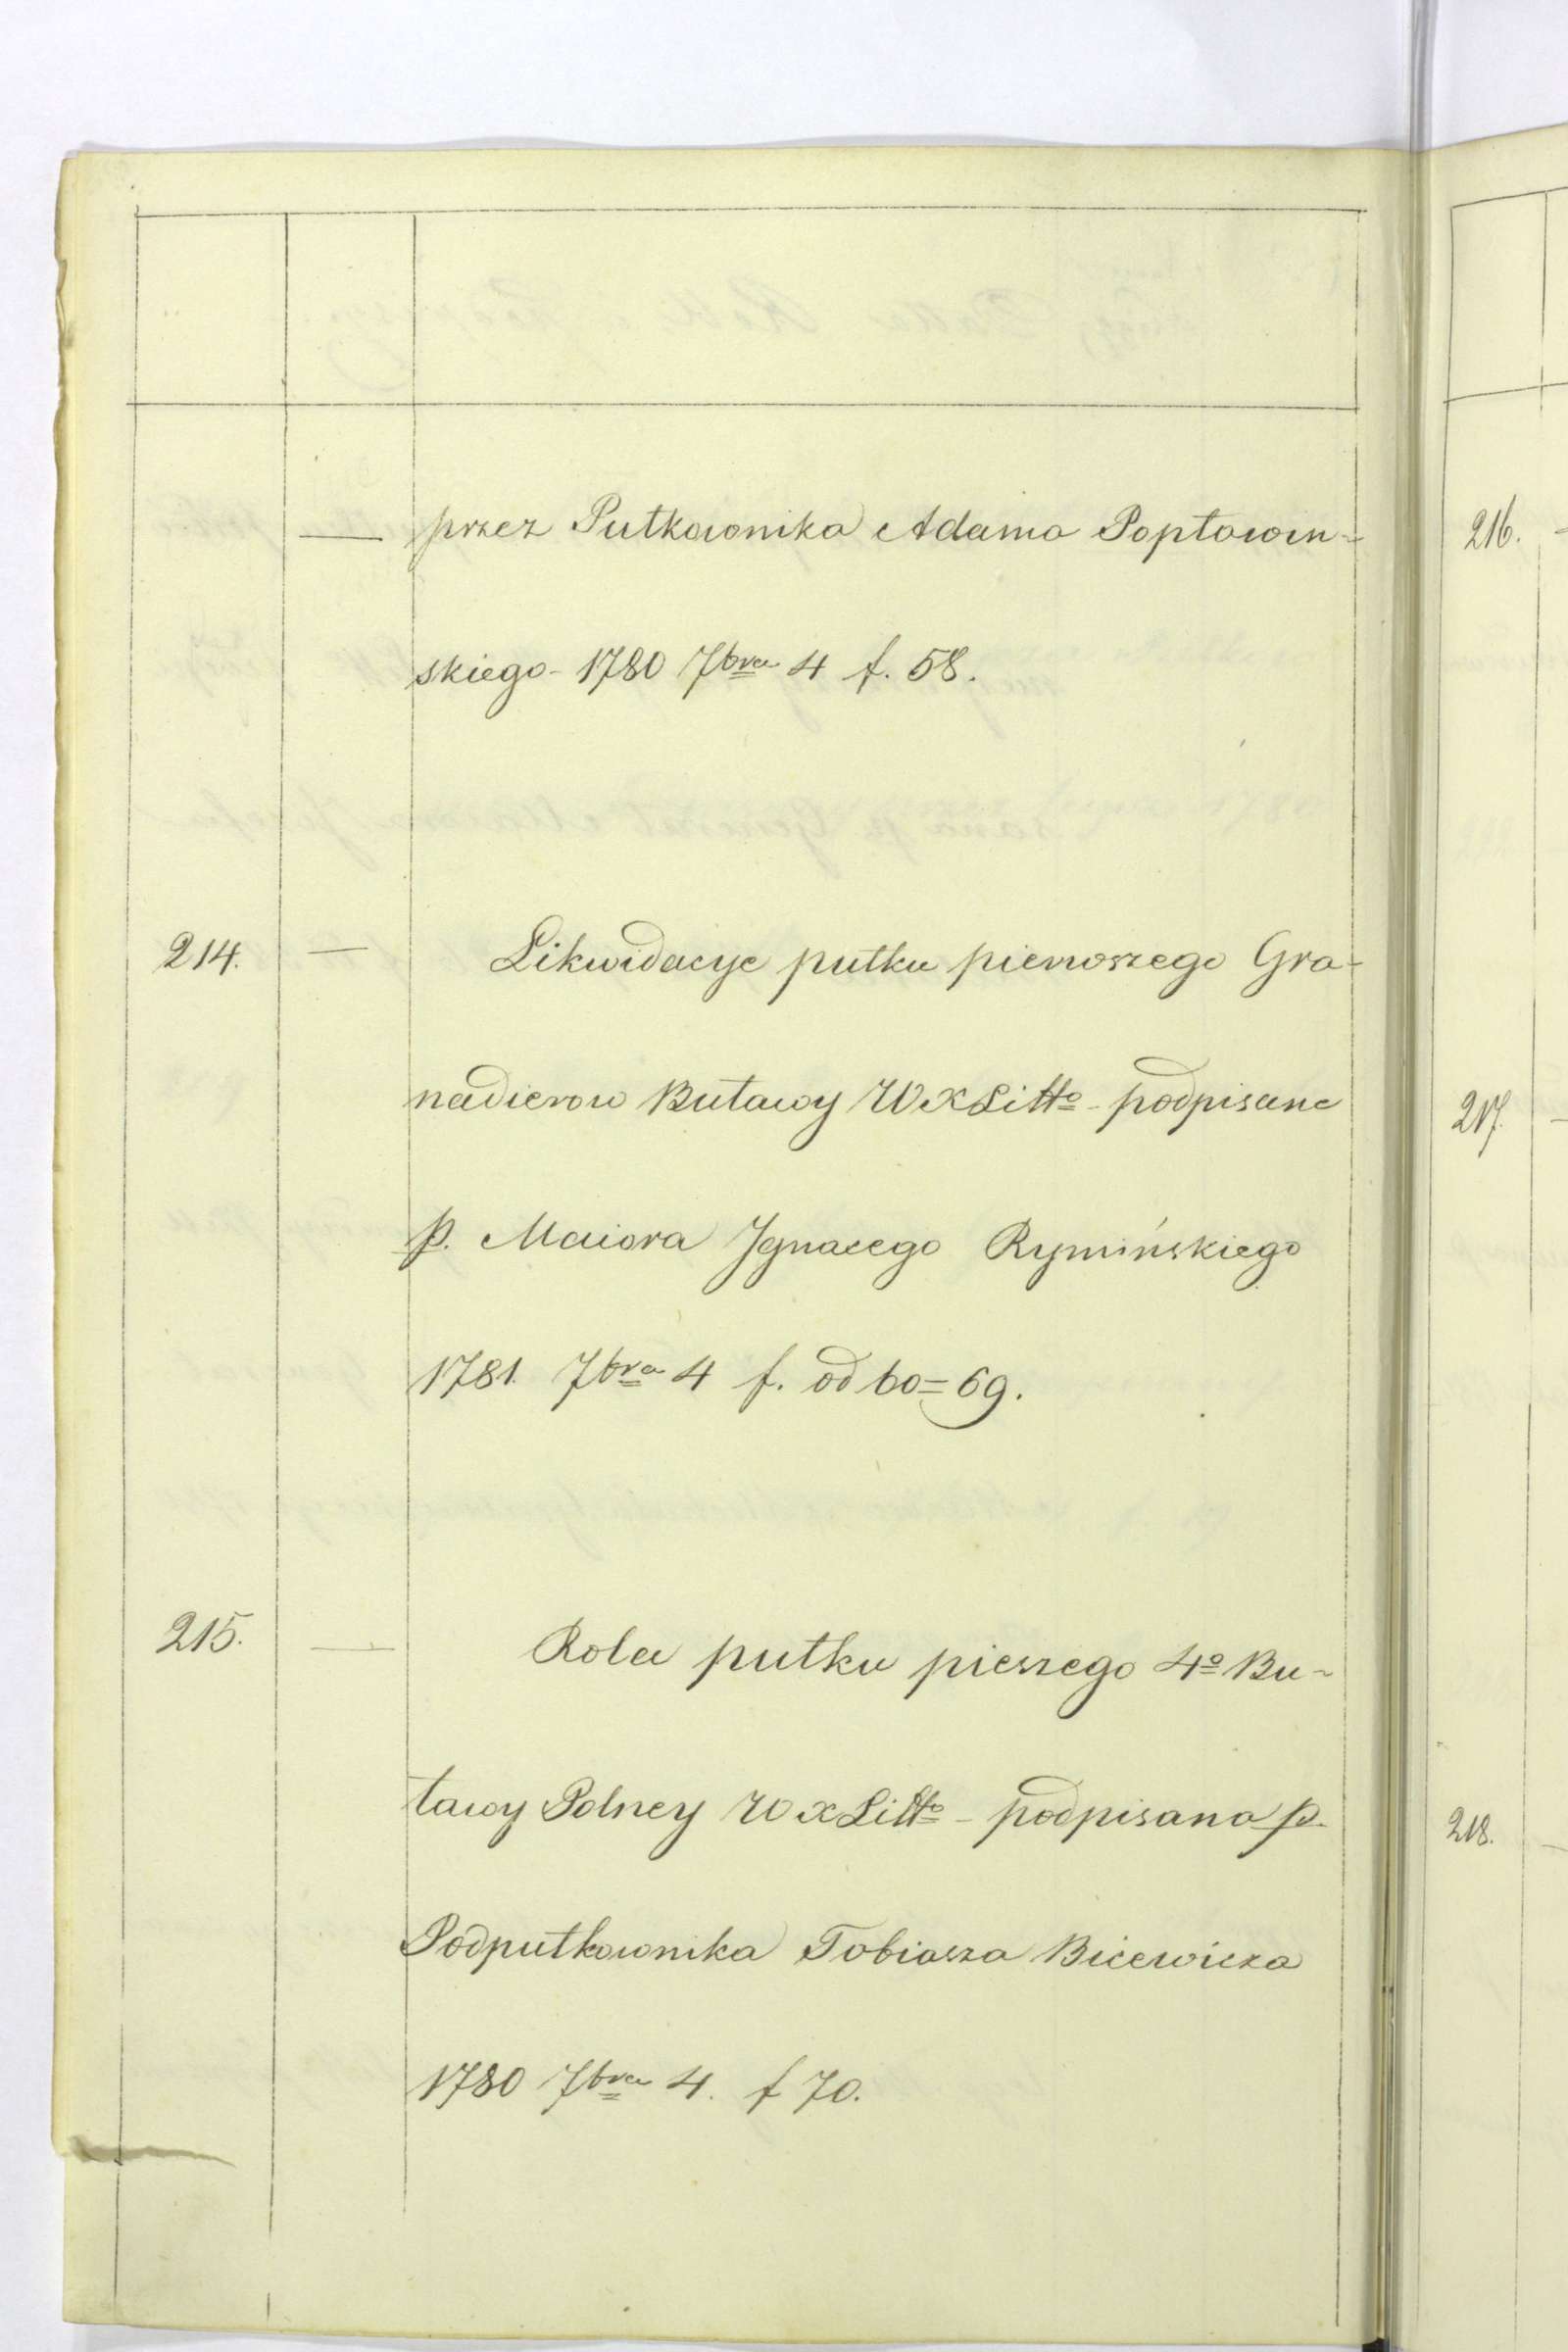 — przez Pułkownika Adama Popławn-
skiego - 1780 7bra 4 f. 58.
214. — Likwidacye pułku pierwszego Gra-
nadierow Buławy W X Litto - podpisane
p. Maiora Jgnacego Rymińskiego
1781. 7bra 4 f. od 60=69.
215. — Rola pułku pieszego 4o Bu-
ławy Polney W X Litto - podpisana p.
Podpułkownika Tobiasza Bicewicza
1780 7bra 4. f 70.
216.
217.
218.